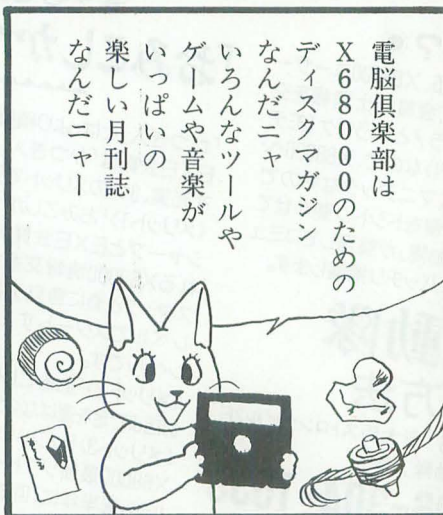 電脳倶楽部は
X68000のための
ディスクマガジン
なんだニャ
いろんなツールや
ゲームや音楽が
いっぱいの
楽しい月刊誌
なんだニャー